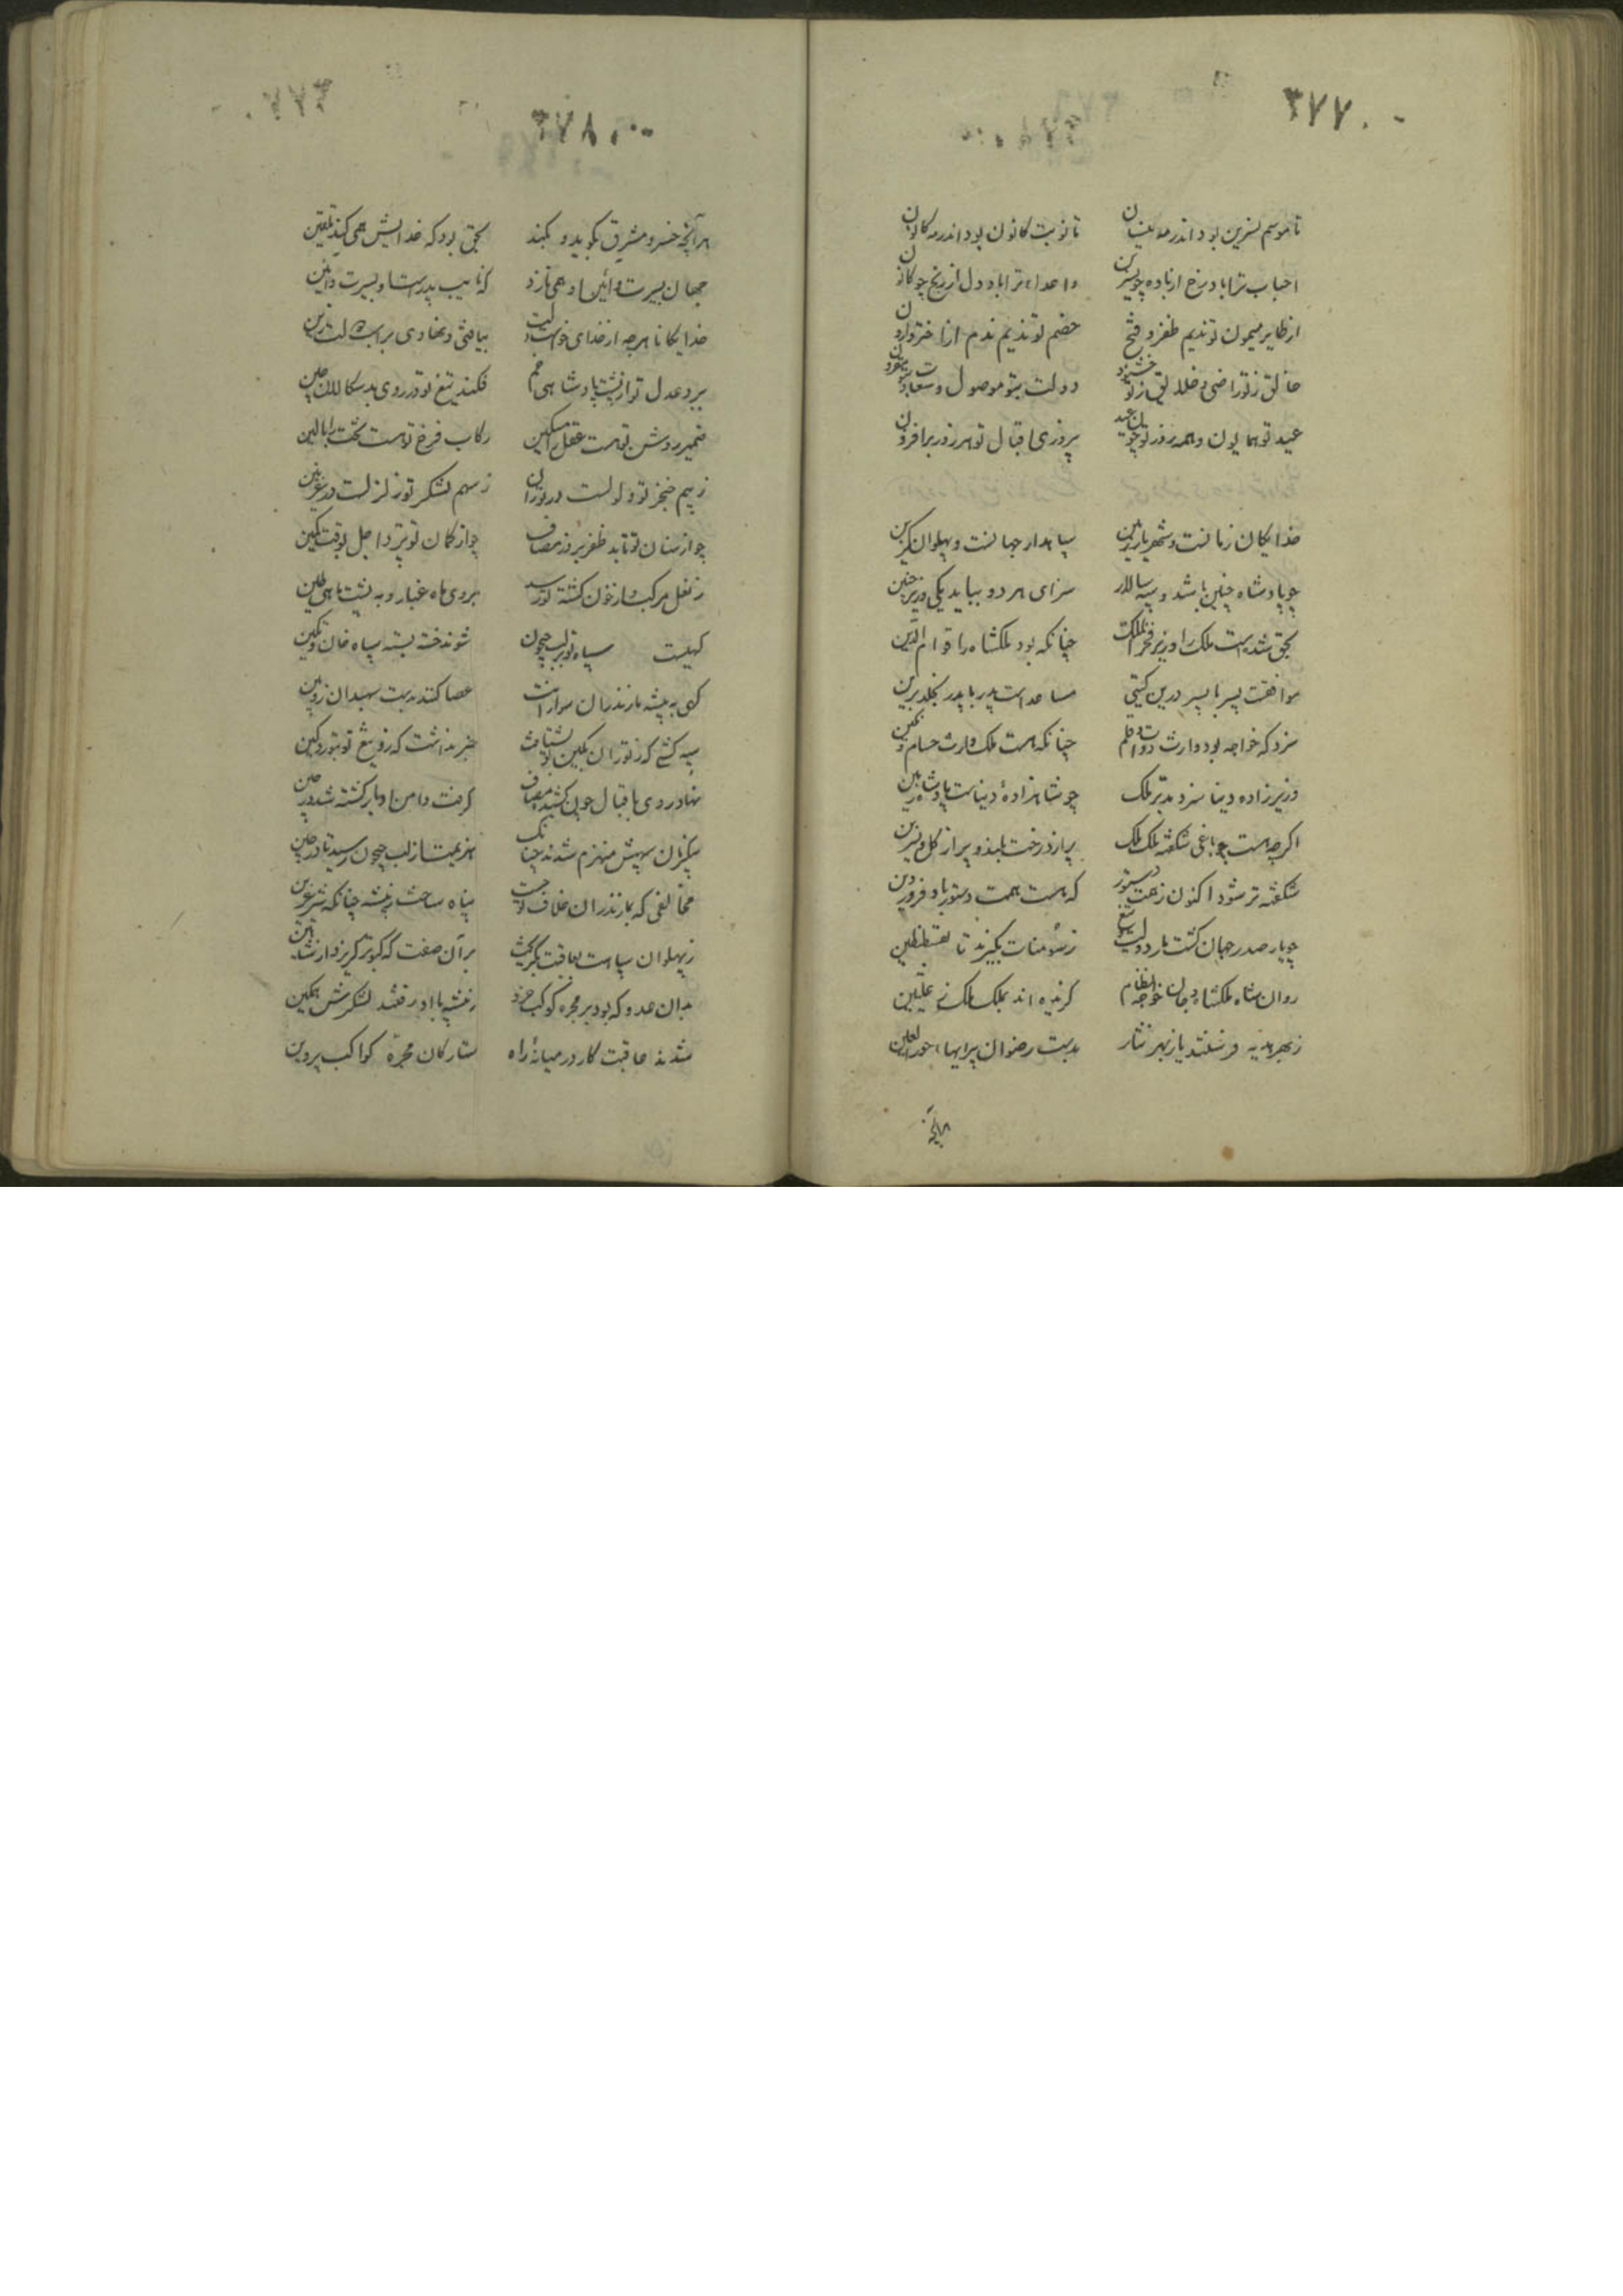 ۳۷۷
تا موسم نسرین بود اندر مه نیسان تا نوبت کانون بود اندر مه کانون
احباب ترا باد رخ از باده چو نسرین و اعداء ترا باد دل از رنج چو کانون
از طایر میمون تو ندیم ظفر و فتح خصم تو ندیم ندم از اختر وارون
خالق ز تو راضی و خلایق ز تو خشنود دولت بتو موصول و سعادت بتو مقرون
عید تو همایون و همه روز تو چون عید پیروزی و اقبال تو هر روز بر افزون
خدایگان زمانست و شهریار زمین سپاهدار جهانست و پهلوان گزین
چو پادشاه چنین باشد و سپه سالار سزای هر دو بباید یکی وزیر چنین
بحق شدست ملک را وزیر فخر الملک چنانکه بود ملکشاه را قوام الدین
موافقت پسر با پسر درین گیتی مساعدست پدر با پدر بخلد برین
سزد که خواجه بود وارث دوات و قلم چنانکه هست ملک وارث حسام و نگین
وزیرزاده دنیا سزد مدبر ملک چو شاهزادهٔ دنیاست پادشاه زمین
اگرچه هست چو باغی شکفته ملک ملک پر از درخت بلند و پر از گل و نسرین
شکفته تر شود اکنون ز همت دستور که هست همت دستور باد فروردین
چو یار صدر جهان گشت یار دولت و تیغ ز سومنات بگیرند تا بقسطنطین
روان شاه ملکشاه و جان خواجه نظام گزیده اند بملک ملک علیین
ز بهر هدیه فرستند یا ز بهر نثار بدست رضوان پیرایها حورالعین
هر آنچه
۳۷۸
هر آنچه خسرو مشرق بگوید و بکند بحق بود که خدایش همی کند تلقین
جهان بسیرت و آئین او همی نازد که نایب پدرست او بسیرت و آئین
خدایگانا هر چه از خدای خواست دلت بیافتی و نهادی بر اسب دولت زین
ببرد عدل تو از پشت پادشاهی خم فکند تیغ تو در روی بدسگالان چین
ضمیر روشن تو هست عقل را تسکین رکاب فرخ تو هست تخت را بالین
ز بیم خنجر تو ولولست در توران ز سهم لشکر تو زلزلست در غزنین
چو از سنان تو تابد ظفر بروز مصاف چو از کمان تو پرد اجل بوقت کمین
ز نعل مرکب و از خون کشته تو رسد بروی ماه غبار و به پشت ماهی طین
گهیست سپاه تو بر لب جیحون شوند خسته و بسته سپاه خان و تکین
گهی به بیشه مازندران سوارانت عصا کنند بدست سپهبدان زوبین
سپه کشی که ز توران بکین تو بشتافت خبر نداشت که زو تیغ تو بتوزد کین
نهاد روی باقبال چون کشید مصاف گرفت دامن ادبار کشته شد در حین
بیکزمان سپهش منهزم شدند چنانک هزیمت از لب جیحون رسید تا در چین
مخالفی که بمازندران خلاف تو جست پناه ساخت ز بیشه چنانکه شیر عرین
ز پهلوان سپاهت بعاقبت بگریخت بر آن صفت که کبوتر گریزد از شاهین
بدان عدو که بود بر مجره کوکب خرد ز بیشه با او رفتند لشکرش همگین
شدند عاقبت کار در میانهٔ راه ستارگان مجره کواکب پروین